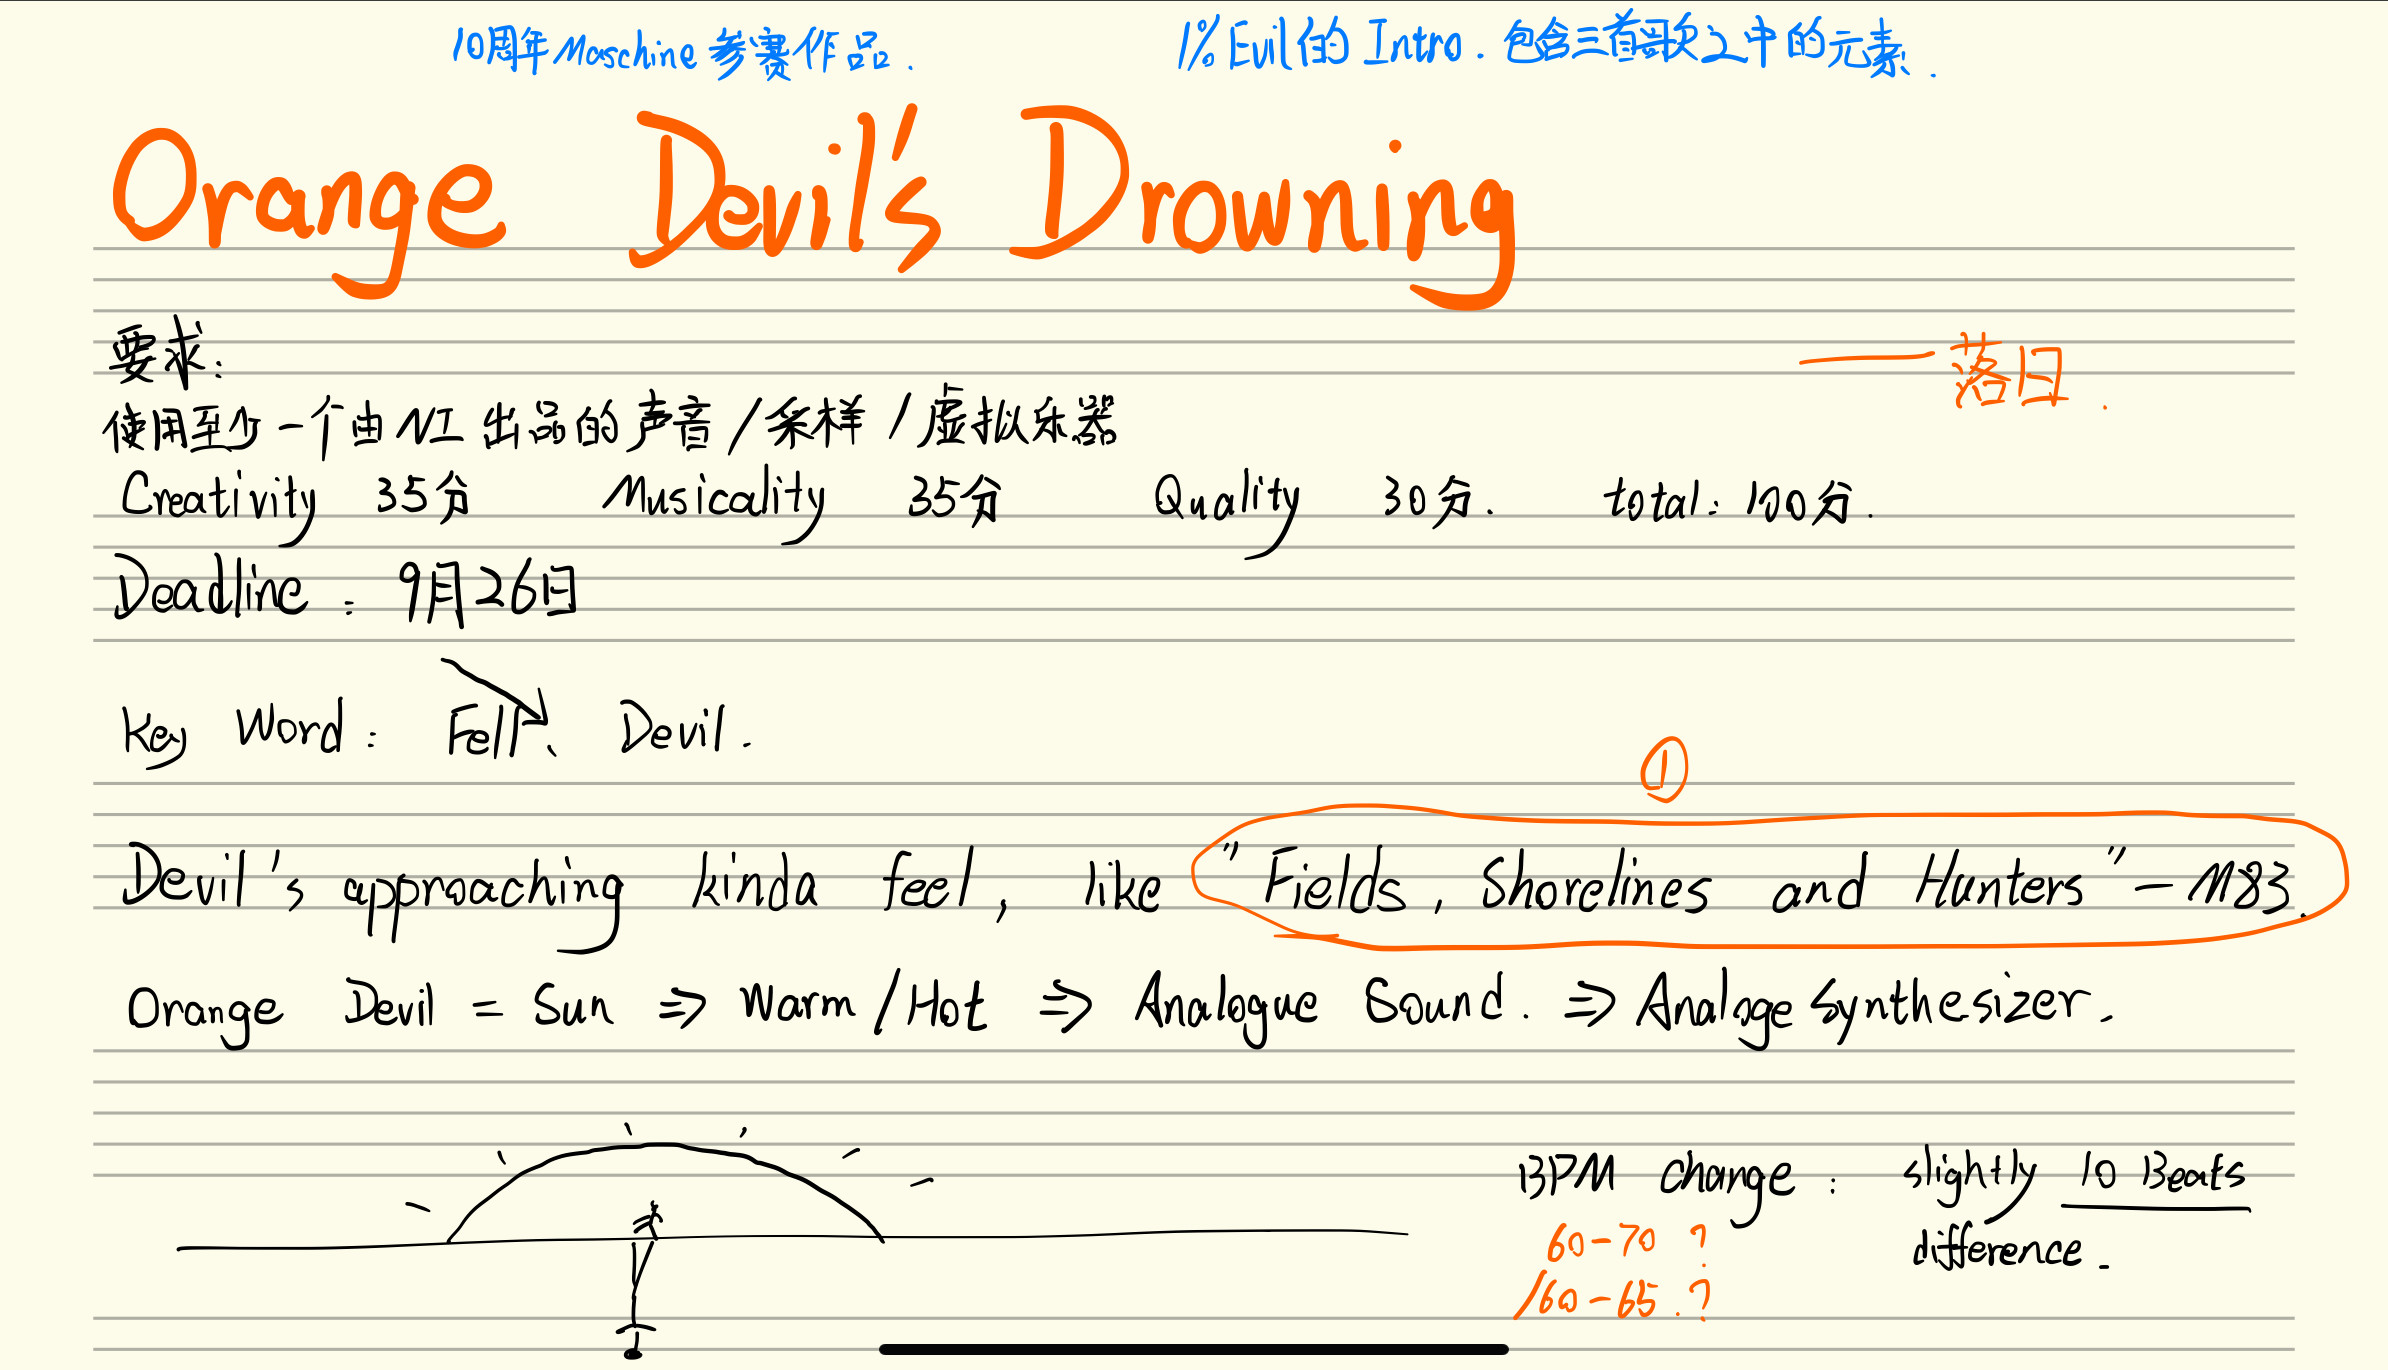 10周年Maschine参赛作品.
1%Evil的Intro.包含三首歌之中的元素.
Orange Devil's Drowning
要求:
——落日.
使用至少一个由NI出品的声音/采样/虚拟乐器
Creativity 35分 Musicality 35分 Quality 30分. total: 100分.
Deadline: 9月26日
Key Word: Fell、Devil.
①
Devil's approaching kinda feel, like "Fields, Shorelines and Hunters"—M83.
Orange Devil = Sun ⇒ Warm/Hot ⇒ Analogue Sound. ⇒ Analoge Synthesizer.
BPM change: slightly 10 Beats
difference.
60-70 ?
/60-65.?